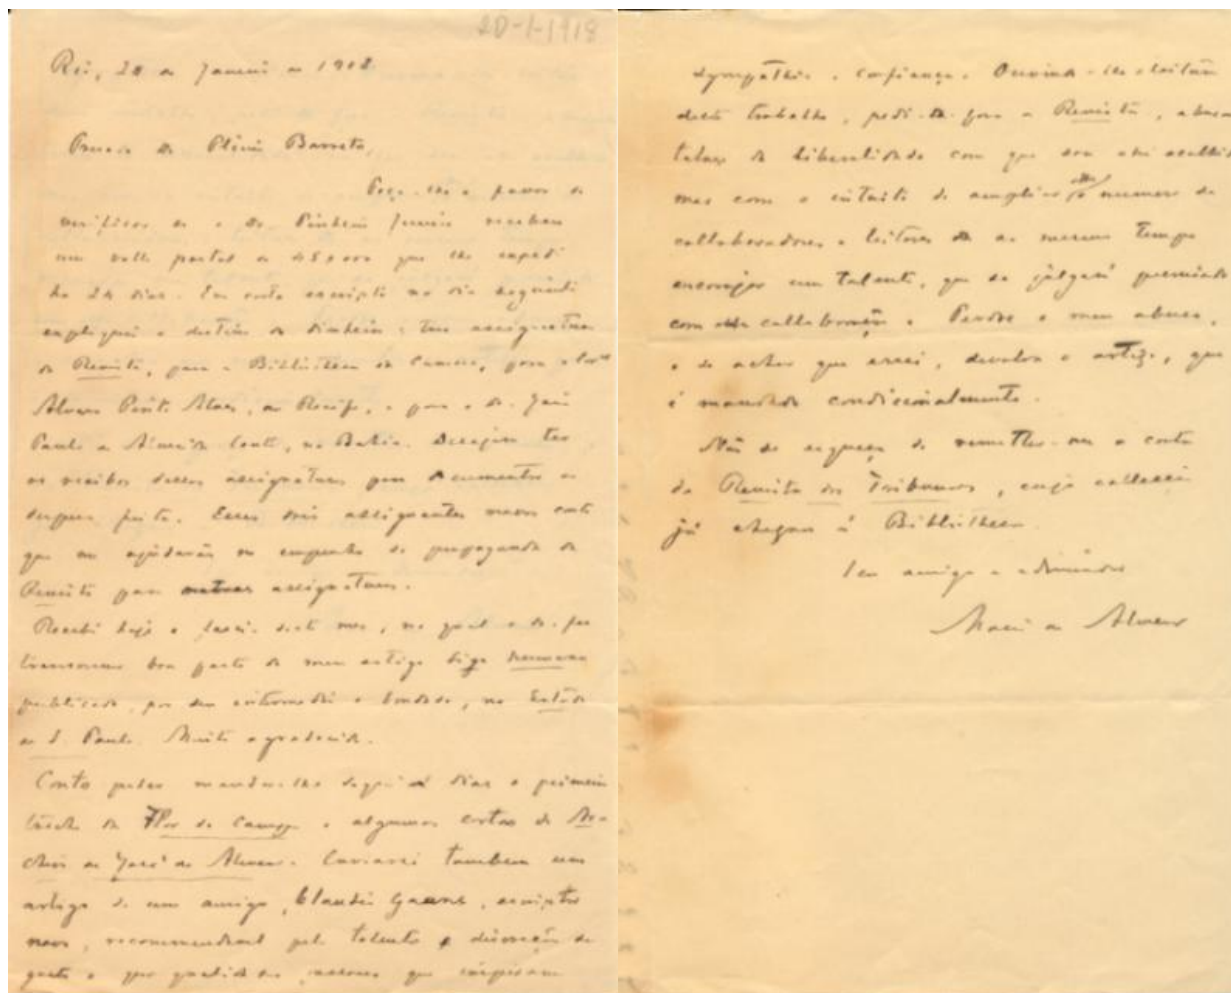 20-1-1918
Rio, 20 de Janeiro de 1918
Presado Dr Plinio Barreto,
Peço-lhe o favor de
verificar se o Dr. Pinheiro Junior recebeu
um valle postal de 45$000 que lhe expedi
ha 20 dias. Em carta escripta no dia seguinte
expliquei o destino do dinheiro: tres assignaturas
da Revista, para a Bibliotheca da Camara, para o
Alvaro Alves, do Recife, e para o dr. José
Paulo de Almeida Couto, na Bahia. Desejava ter
os recibos dessas assignaturas para documentar a
despesa feita. Esses dois assignantes novos creio
que me ajudarão no empenho de propaganda da
Revista para outras assignaturas.
Recebi hoje o fasc. deste mez, no qual o dr. fez
transcrever boa parte do meu artigo
publicado, por seu intermedio e bondade, no Estado
de S. Paulo. Muito agradecido.
Conto poder mandar-lhe daqui a dias o primeiro
trecho da Flor de e algumas cartas do Ar-
chivo de José de Alencar. Enviarei tambem um
artigo de um amigo, Claudio Ganns, escriptor
novo, recommendavel pelo talento e discreção de
gosto e por qualidades pessoaes que inspiram
sympathia e confiança. Ouvindo-lhe a leitura
deste trabalho, pedi-lh'o para a Revista, abusando
talvez da liberalidade com que sou ahi acolhido
mas com o intuito de ampliar o numero de
collaboradores e leitores e ao mesmo tempo
encorajar um talento, que se julgará premiado
com collaboração. Perdoe o meu abuso,
e se achar que errei, devolva o artigo, que
é mandado condiccionalmente.
Não se esqueça de remetter-me a conta
da Revista dos Tribunaes, cuja collecção
já chegou á Bibliotheca.
Seu amigo e admirador
Mario de Alencar